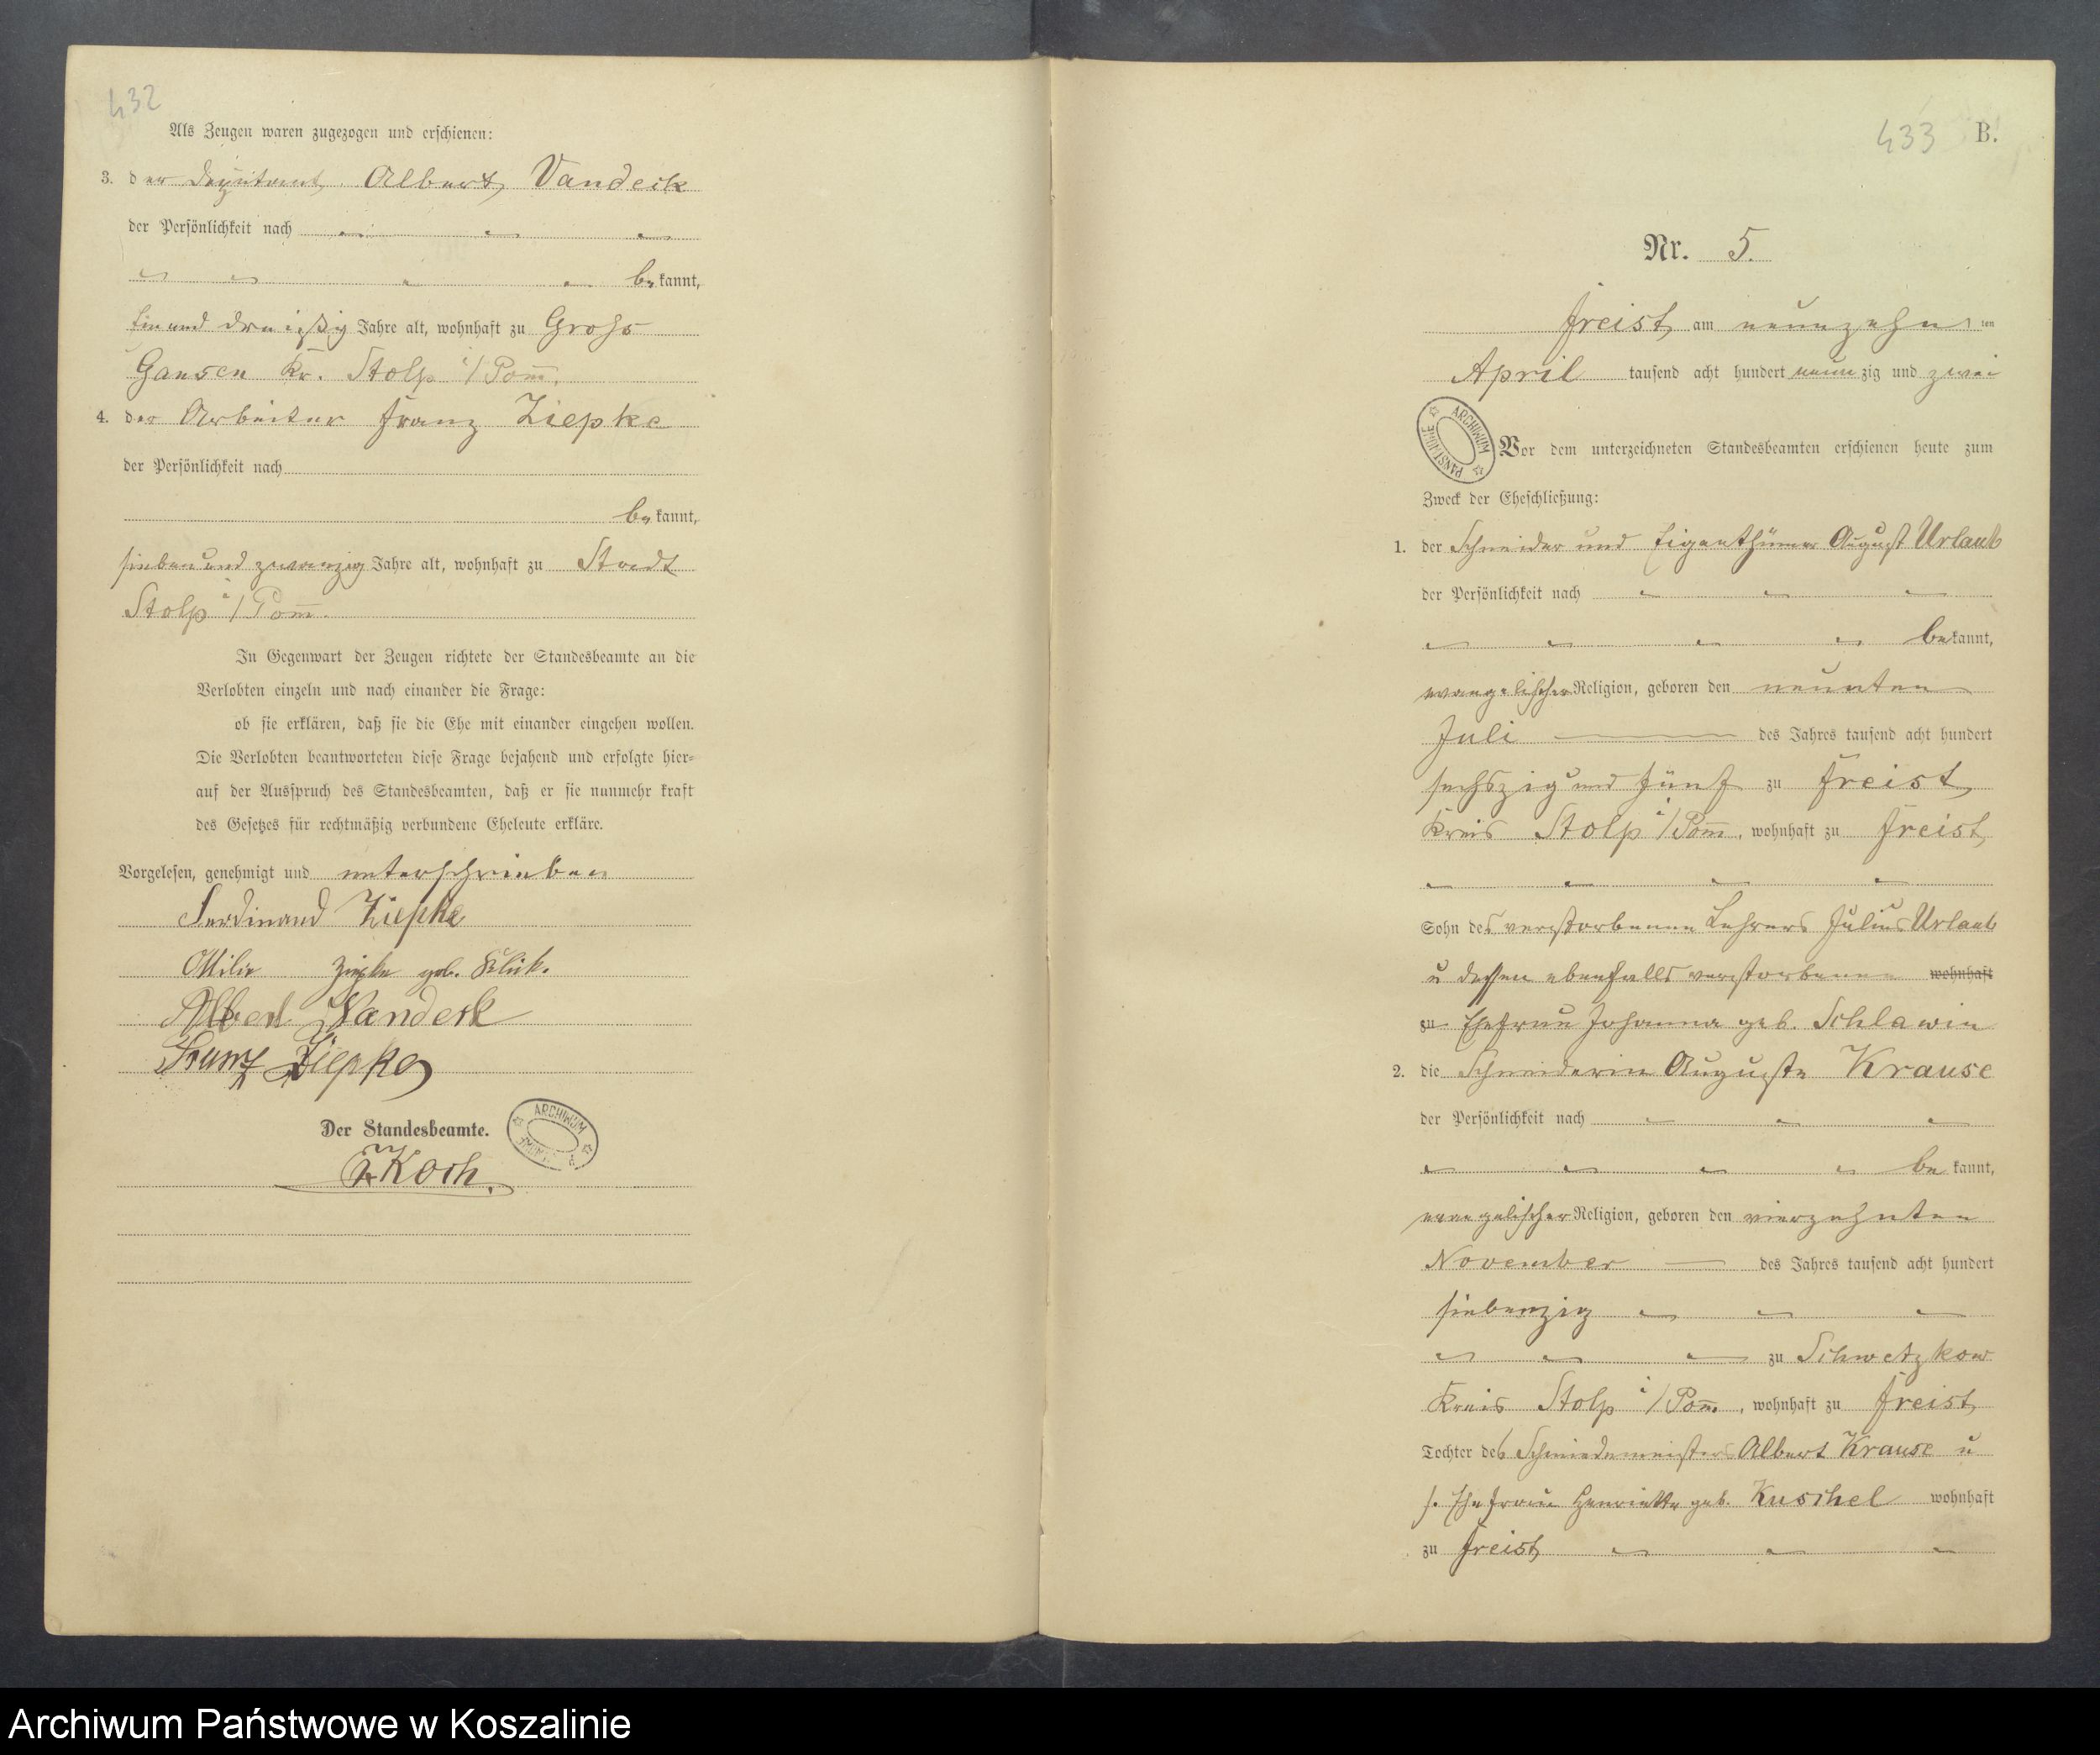 432
Als Zeugen waren zugezogen und erschienen:
3. der Deputant Albert Vandeck
der Persönlichkeit nach
bekannt,
ein und dreißig Jahre alt, wohnhaft zu Grohs
Gansen Kr. Stolp i/Pom.
4. der Arbeiter Franz Ziepke
der Persönlichkeit nach
bekannt,
sieben und zwanzig Jahre alt, wohnhaft zu Stadt
Stolp i/Pom.
In Gegenwart der Zeugen richtete der Standesbeamte an die
Verlobten einzeln und nach einander die Frage:
ob sie erklären, daß sie die Ehe mit einander eingehen wollen.
Die Verlobten beantworteten diese Frage bejahend und erfolgte hier-
auf der Ausspruch des Standesbeamten, daß er sie nunmehr kraft
des Gesetzes für rechtmäßig verbundene Eheleute erkläre.
Vorgelesen, genehmigt und unterschrieben
Ferdinand Ziepke
Ottilie Ziepke geb. Klük.
Albert Vandeck
Franz Ziepke
Der Standesbeamte.
ARCHIWUM
Koch.
433 B.
Nr. 5.
Freist, am neunzehn ten
April tausend acht hundert neunzig und zwei
ARCHIWUM PAŃSTWOWE
Vor dem unterzeichneten Standesbeamten erschienen heute zum
Zweck der Eheschließung:
1. der Schneider und Eigenthümer August Urlaub
der Persönlichkeit nach
bekannt,
evangelischer Religion, geboren den neunten
Juli des Jahres tausend acht hundert
sechszig und fünf zu Freist,
Kreis Stolp i/Pom, wohnhaft zu Freist,
Sohn des verstorbenen Lehrers Julius Urlaub
u dessen ebenfalls verstorbenen wohnhaft
zu Ehefrau Johanna geb. Schlawin
2. die Schneiderin Auguste Krause
der Persönlichkeit nach
bekannt,
evangelischer Religion, geboren den vierzehnten
November des Jahres tausend acht hundert
siebenzig
zu Schwetzkow
Kreis Stolp i/Pom., wohnhaft zu Freist,
Tochter des Schmiedemeisters Albert Krause u
s. Ehefrau Henriette geb. Kuschel wohnhaft
zu Freist,
Archiwum Państwowe w Koszalinie